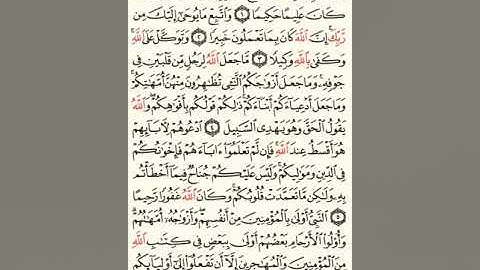 كَانَ عَلِيمًا حَكِيمًا ۝١ وَٱتَّبِعْ مَا يُوحَىٰٓ إِلَيْكَ مِن
رَّبِّكَۚ إِنَّ ٱللَّهَ كَانَ بِمَا تَعْمَلُونَ خَبِيرًا ۝٢ وَتَوَكَّلْ عَلَى ٱللَّهِۚ
وَكَفَىٰ بِٱللَّهِ وَكِيلًا ۝٣ مَّا جَعَلَ ٱللَّهُ لِرَجُلٍ مِّن قَلْبَيْنِ فِى
جَوْفِهِۦۚ وَمَا جَعَلَ أَزْوَٰجَكُمُ ٱلَّٰٓـِٔى تُظَٰهِرُونَ مِنْهُنَّ أُمَّهَٰتِكُمْۚ
وَمَا جَعَلَ أَدْعِيَآءَكُمْ أَبْنَآءَكُمْۚ ذَٰلِكُمْ قَوْلُكُم بِأَفْوَٰهِكُمْۖ وَٱللَّهُ
يَقُولُ ٱلْحَقَّ وَهُوَ يَهْدِى ٱلسَّبِيلَ ۝٤ ٱدْعُوهُمْ لِءَابَآئِهِمْ
هُوَ أَقْسَطُ عِندَ ٱللَّهِۚ فَإِن لَّمْ تَعْلَمُوٓا۟ ءَابَآءَهُمْ فَإِخْوَٰنُكُمْ
فِى ٱلدِّينِ وَمَوَٰلِيكُمْۚ وَلَيْسَ عَلَيْكُمْ جُنَاحٌ فِيمَآ أَخْطَأْتُم
بِهِۦ وَلَٰكِن مَّا تَعَمَّدَتْ قُلُوبُكُمْۚ وَكَانَ ٱللَّهُ غَفُورًا رَّحِيمًا
۝٥ ٱلنَّبِىُّ أَوْلَىٰ بِٱلْمُؤْمِنِينَ مِنْ أَنفُسِهِمْۖ وَأَزْوَٰجُهُۥٓ أُمَّهَٰتُهُمْۗ
وَأُو۟لُوا۟ ٱلْأَرْحَامِ بَعْضُهُمْ أَوْلَىٰ بِبَعْضٍ فِى كِتَٰبِ ٱللَّهِ
مِنَ ٱلْمُؤْمِنِينَ وَٱلْمُهَٰجِرِينَ إِلَّآ أَن تَفْعَلُوٓا۟ إِلَىٰٓ أَوْلِيَآئِكُم